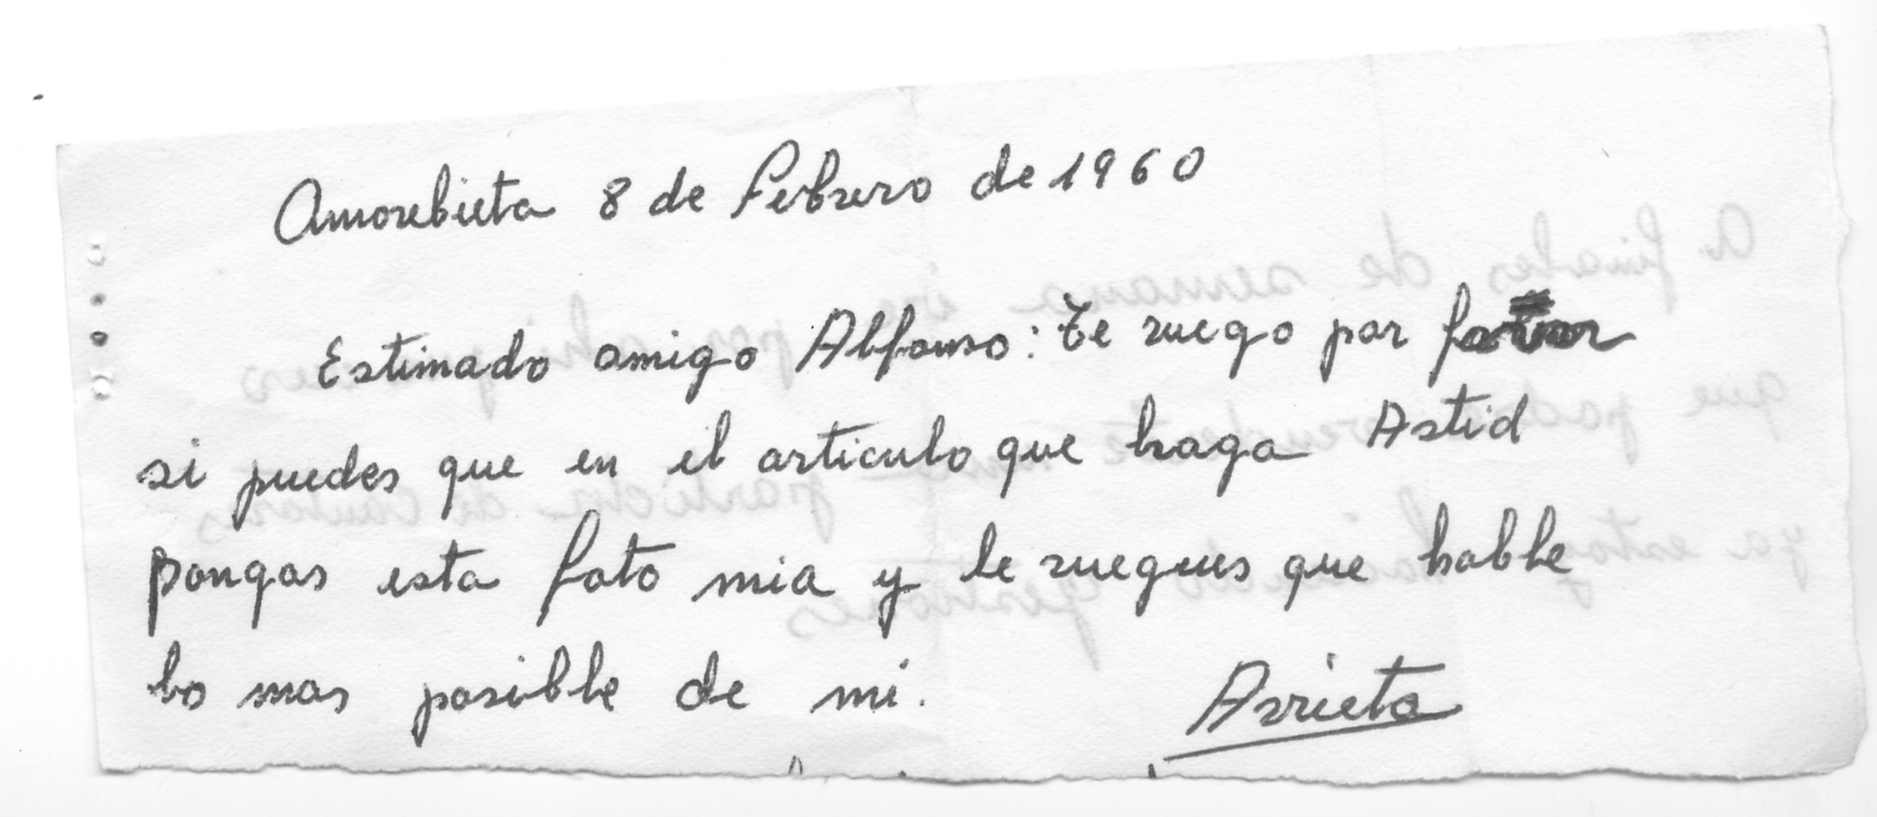 Amorebieta 8 de Febrero de 1960
Estimado amigo Alfonso: Te ruego por favor
si puedes que en el articulo que haga Astid
pongas esta foto mia y le ruegues que hable
lo mas posible de mi.
Arrieta